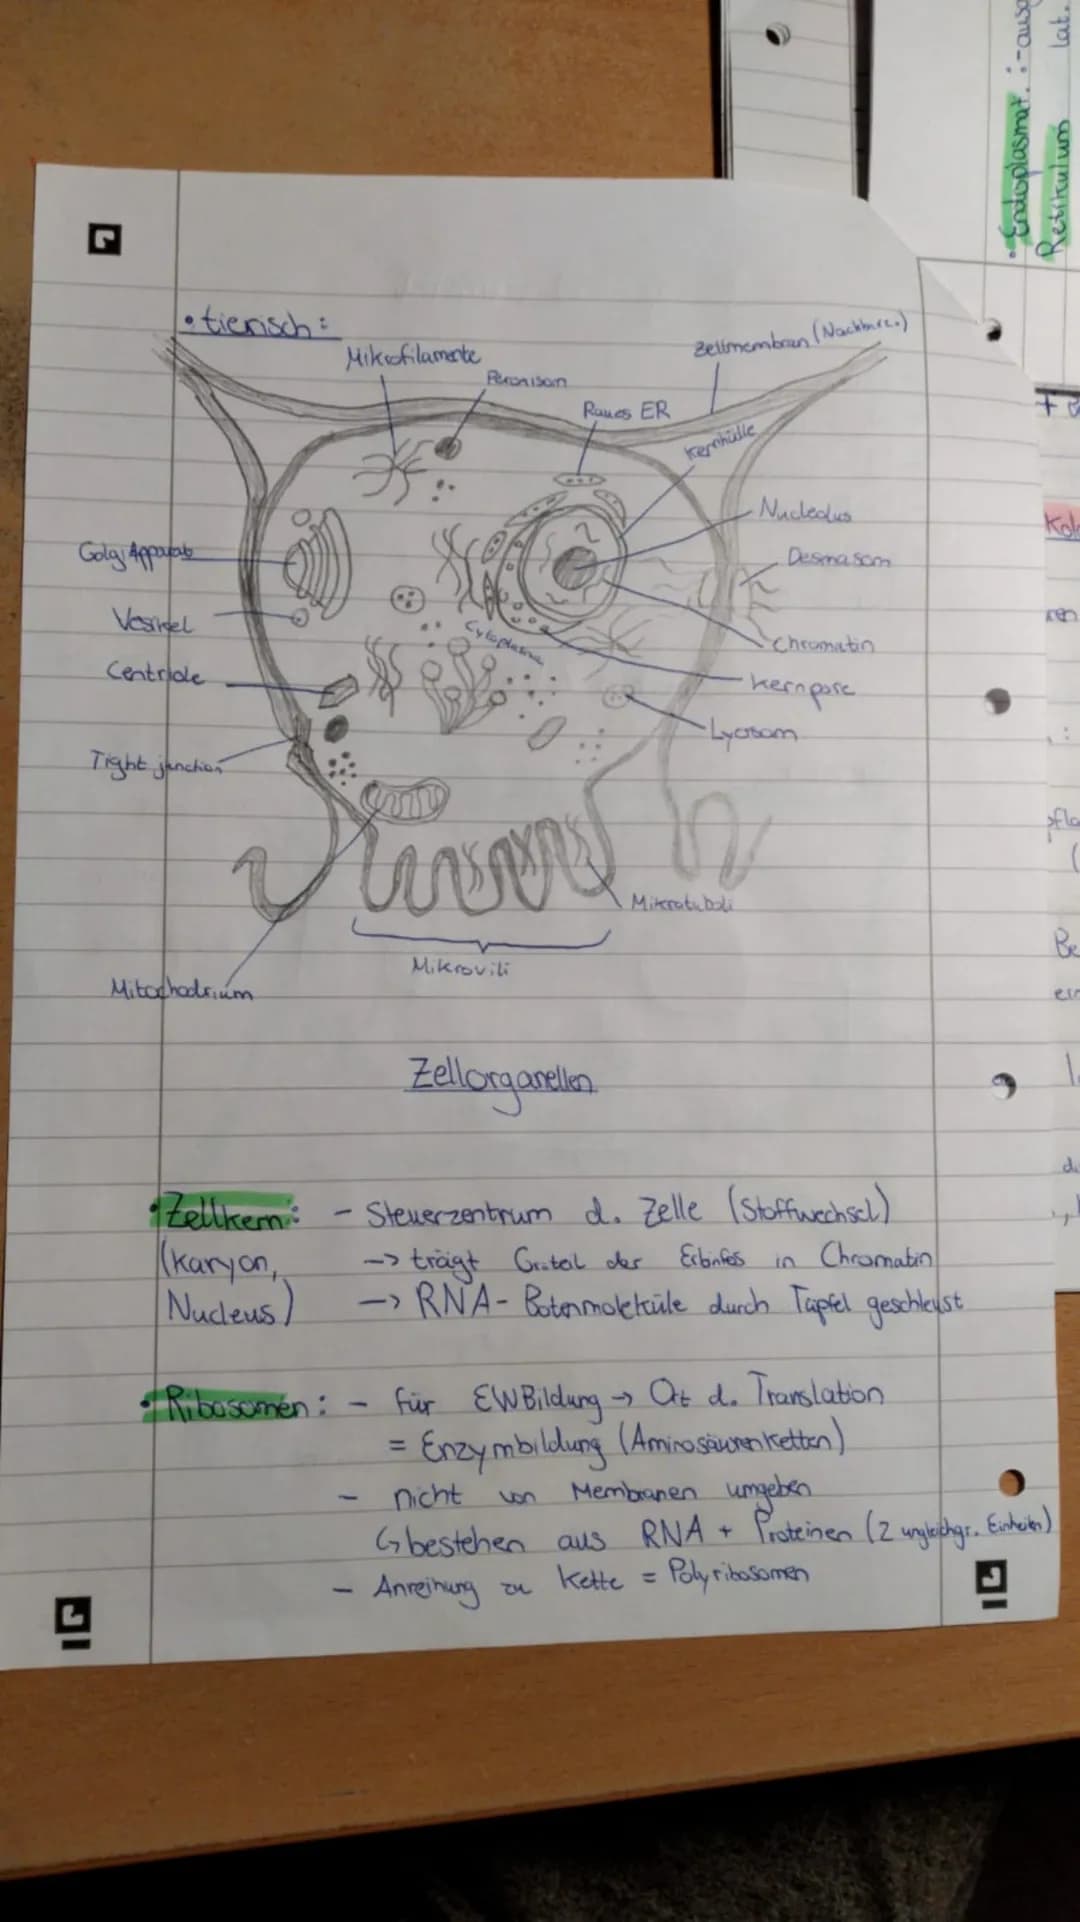 • tierisch:
Mikrofilamente
Zellmembran (Nachbarz.)
Peroxisom
Raues ER
Kernhülle
Nucleolus
Golgi Apparat
Desmosom
Vesikel
Cytoplasma
Chromatin
Centriole
Kernpore
Lysosom
Tight junction
Mikrotuboli
Mikrovili
Mitochodrium
Zellorganellen
• Zellkern: - Steuerzentrum d. Zelle (Stoffwechsel)
(Karyon, -> trägt Großteil der Erbinfos in Chromatin
Nucleus) -> RNA-Botenmoleküle durch Tüpfel geschleust
• Ribosomen: - für EWBildung → Ort d. Translation
= Enzymbildung (Aminosäurenketten)
- nicht von Membranen umgeben
↳ bestehen aus RNA + Proteinen (2 ungleichgr. Einheiten)
- Anreihung zu Kette = Polyribosomen
• Endoplasmat. :-
Retikulum lat.